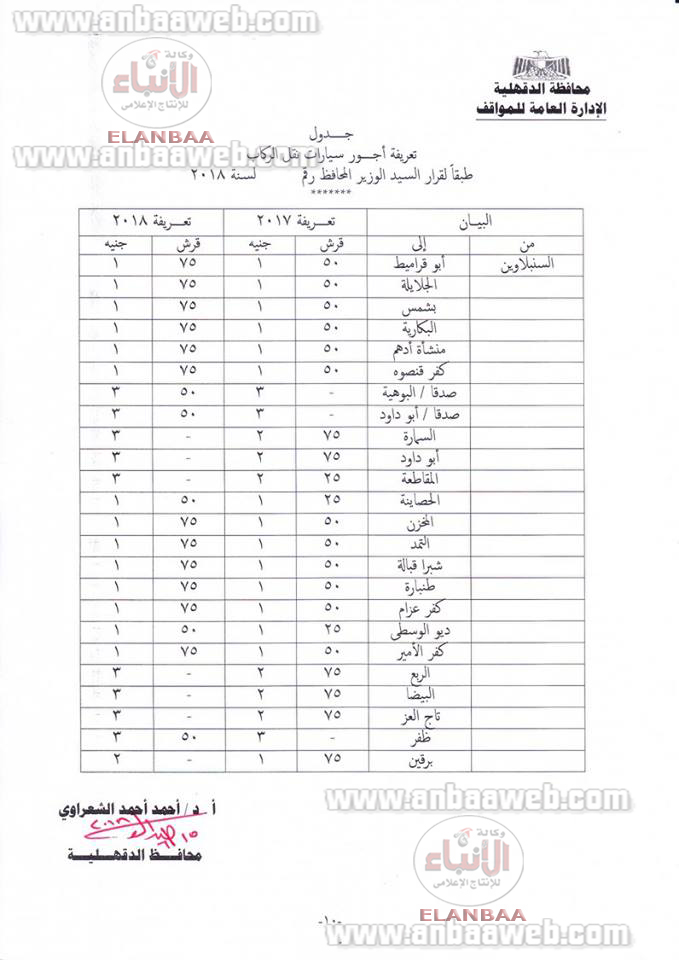 www.anbaaweb.com
وكالة
الأنباء
للإنتاج الإعلامى
ELANBAA
محافظة الدقهلية
الإدارة العامة للمواقف
www.anbaaweb.com www.anbaaweb.com
جـدول
تعريفة أجـور سيارات نقل الركاب
طبقاً لقرار السيد الوزير المحافظ رقم لسنة ٢٠١٨
*******
البيـان تعـريفة ٢٠١٧ تعـريفة ٢٠١٨
من إلى قرش جنيه قرش جنيه
السنبلاوين أبو قراميط ٥٠ ١ ٧٥ ١
الجلايلة ٥٠ ١ ٧٥ ١
بشمس ٥٠ ١ ٧٥ ١
البكارية ٥٠ ١ ٧٥ ١
منشأة أدهم ٥٠ ١ ٧٥ ١
كفر قنصوه ٥٠ ١ ٧٥ ١
صدقا / البوهية - ٣ ٥٠ ٣
صدقا / أبو داود - ٣ ٥٠ ٣
السمارة ٧٥ ٢ - ٣
أبو داود ٧٥ ٢ - ٣
المقاطعة ٢٥ ٢ - ٣
الحصاينة ٢٥ ١ ٥٠ ١
المخزن ٥٠ ١ ٧٥ ١
التمد ٥٠ ١ ٧٥ ١
شبرا قبالة ٥٠ ١ ٧٥ ١
طنبارة ٥٠ ١ ٧٥ ١
كفر عزام ٥٠ ١ ٧٥ ١
ديو الوسطى ٢٥ ١ ٥٠ ١
كفر الأمير ٥٠ ١ ٧٥ ١
الربع ٧٥ ٢ - ٣
البيضا ٧٥ ٢ - ٣
تاج العز ٧٥ ٢ - ٣
ظفر - ٣ ٥٠ ٣
برقين ٧٥ ١ - ٢
www.anbaaweb.com
أ د/ أحمد أحمد الشعراوي
محافـظ الدقهـلـيـة
وكالة
الأنباء
للإنتاج الإعلامى
ELANBAA
-١٠-
www.anbaaweb.com